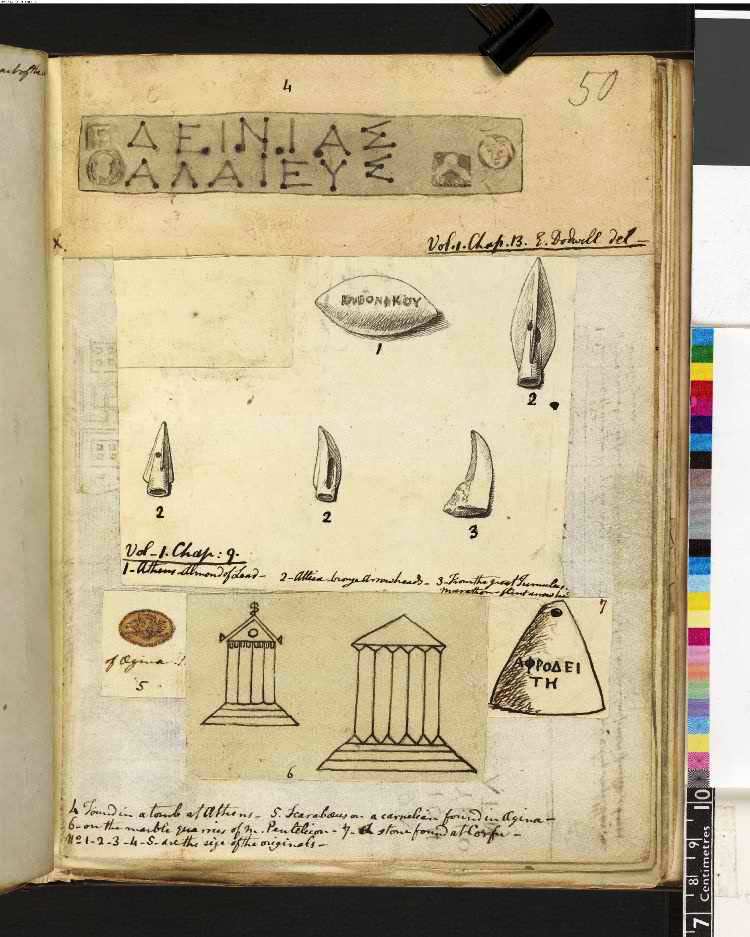 4
50
ΔΕΙΝΙΑΣ
ΑΛΑΙΕΥΣ
Vol. 1. Chap. 13. E. Dodwell del—
1
2
2
2
3
Vol—1. Chap: 9.
1—Athens Almond of Lead— 2—Attica bronze arrowheads— 3—From the great Tumulus,
marathon—flint
of Ægina
5
6
7
ΑΦΡΟΔΕΙ
ΤΗ
4 Found in a tomb at Athens— 5. Scarabæus on a carnelian found in Ægina—
6—on the marble quarries of m. Pentelicon—7— stone found at Corfu—
No 1—2—3—4—5—are the size of the originals—
7 8 9 10
Centimetres